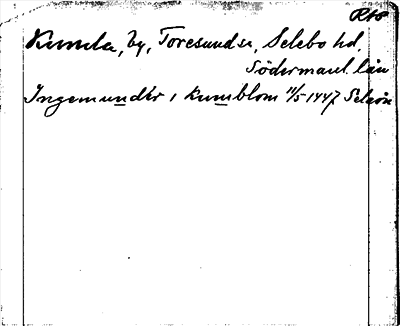 RAö
Kumla, by, Toresunds sn, Selebo hd,
Södermanl. län
Ingemundér i kumblom 11/5 1447 Selaön